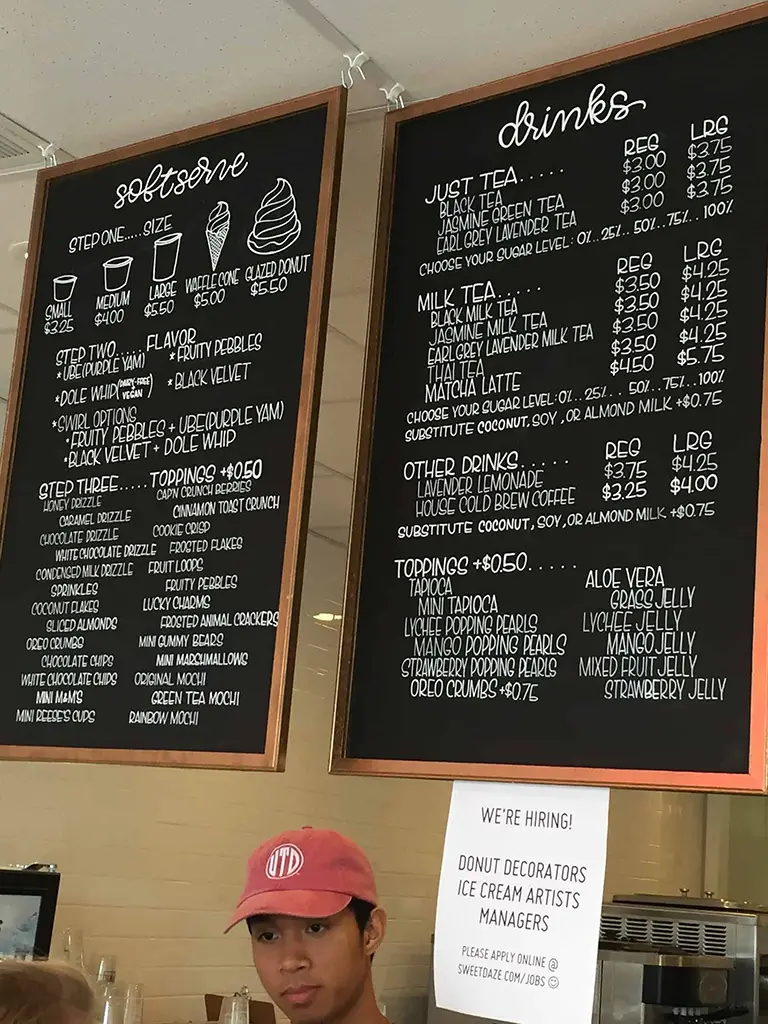 softserve
STEP ONE.....SIZE
SMALL MEDIUM LARGE WAFFLE CONE GLAZED DONUT
$3.25 $4.00 $5.50 $5.00 $5.50
STEP TWO.....FLAVOR
*UBE(PURPLE YAM) *FRUITY PEBBLES
*DOLE WHIP(DAIRY-FREE + VEGAN) *BLACK VELVET
*SWIRL OPTIONS
*FRUITY PEBBLES + UBE(PURPLE YAM)
*BLACK VELVET + DOLE WHIP
STEP THREE.....TOPPINGS +$0.50
HONEY DRIZZLE CAP'N CRUNCH BERRIES
CARAMEL DRIZZLE CINNAMON TOAST CRUNCH
CHOCOLATE DRIZZLE COOKIE CRISP
WHITE CHOCOLATE DRIZZLE FROSTED FLAKES
CONDENSED MILK DRIZZLE FRUIT LOOPS
SPRINKLES FRUITY PEBBLES
COCONUT FLAKES LUCKY CHARMS
SLICED ALMONDS FROSTED ANIMAL CRACKERS
OREO CRUMBS MINI GUMMY BEARS
CHOCOLATE CHIPS MINI MARSHMALLOWS
WHITE CHOCOLATE CHIPS ORIGINAL MOCHI
MINI M&M'S GREEN TEA MOCHI
MINI REESE'S CUPS RAINBOW MOCHI
drinks
JUST TEA..... REG LRG
BLACK TEA $3.00 $3.75
JASMINE GREEN TEA $3.00 $3.75
EARL GREY LAVENDER TEA $3.00 $3.75
CHOOSE YOUR SUGAR LEVEL: 0%..25%..50%..75%..100%
MILK TEA..... REG LRG
BLACK MILK TEA $3.50 $4.25
JASMINE MILK TEA $3.50 $4.25
EARL GREY LAVENDER MILK TEA $3.50 $4.25
THAI TEA $3.50 $4.25
MATCHA LATTE $4.50 $5.75
CHOOSE YOUR SUGAR LEVEL: 0%..25%..50%..75%..100%
SUBSTITUTE COCONUT, SOY, OR ALMOND MILK +$0.75
OTHER DRINKS...... REG LRG
LAVENDER LEMONADE $3.75 $4.25
HOUSE COLD BREW COFFEE $3.25 $4.00
SUBSTITUTE COCONUT, SOY, OR ALMOND MILK +$0.75
TOPPINGS +$0.50.....
TAPIOCA ALOE VERA
MINI TAPIOCA GRASS JELLY
LYCHEE POPPING PEARLS LYCHEE JELLY
MANGO POPPING PEARLS MANGO JELLY
STRAWBERRY POPPING PEARLS MIXED FRUIT JELLY
OREO CRUMBS +$0.75 STRAWBERRY JELLY
WE'RE HIRING!
DONUT DECORATORS
ICE CREAM ARTISTS
MANAGERS
PLEASE APPLY ONLINE @
SWEETDAZE.COM/JOBS ☺
UTD